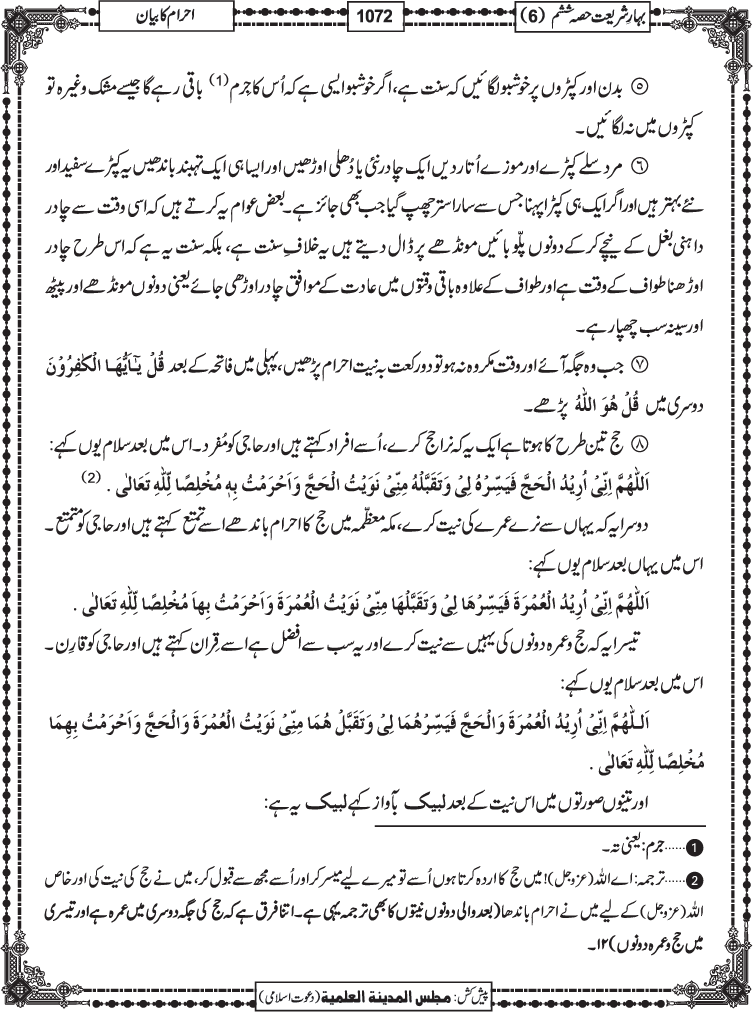 بہارِ شریعت حصہ ششم (6)
1072
احرام کا بیان
۵ بدن اور کپڑوں پر خوشبو لگائیں کہ سنت ہے، اگر خوشبو ایسی ہے کہ اُس کا جِرم (1) باقی رہے گا جیسے مشک وغیرہ تو
کپڑوں میں نہ لگائیں۔
۶ مرد سلے کپڑے اور موزے اُتار دیں ایک چادر نئی یا دُھلی اوڑھیں اور ایسا ہی ایک تہبند باندھیں یہ کپڑے سفید اور
نئے بہتر ہیں اور اگر ایک ہی کپڑا پہنا جس سے سارا ستر چھپ گیا جب بھی جائز ہے۔ بعض عوام یہ کرتے ہیں کہ اسی وقت سے چادر
داہنی بغل کے نیچے کرکے دونوں پلّو بائیں مونڈھے پر ڈال دیتے ہیں یہ خلافِ سنت ہے، بلکہ سنت یہ ہے کہ اس طرح چادر
اوڑھنا طواف کے وقت ہے اور طواف کے علاوہ باقی وقتوں میں عادت کے موافق چادر اوڑھی جائے یعنی دونوں مونڈھے اور پیٹھ
اور سینہ سب چھپا رہے۔
۷ جب وہ جگہ آئے اور وقت مکروہ نہ ہو تو دو رکعت بہ نیت احرام پڑھیں، پہلی میں فاتحہ کے بعد قُلْ یٰۤاَیُّهَا الْكٰفِرُوْنَ
دوسری میں قُلْ هُوَ اللّٰهُ پڑھے۔
۸ حج تین طرح کا ہوتا ہے ایک یہ کہ نرا حج کرے، اُسے اِفراد کہتے ہیں اور حاجی کو مُفرد۔ اس میں بعد سلام یوں کہے:
اَللّٰهُمَّ اِنِّیْ اُرِیْدُ الْحَجَّ فَیَسِّرْهُ لِیْ وَتَقَبَّلْهُ مِنِّیْ نَوَیْتُ الْحَجَّ وَاَحْرَمْتُ بِهٖ مُخْلِصًا لِّلّٰهِ تَعَالٰی . (2)
دوسرا یہ کہ یہاں سے نرے عمرے کی نیت کرے، مکہ معظّمہ میں حج کا احرام باندھے اسے تمتع کہتے ہیں اور حاجی کو متمتع۔
اس میں یہاں بعد سلام یوں کہے:
اَللّٰهُمَّ اِنِّیْ اُرِیْدُ الْعُمْرَةَ فَیَسِّرْهَا لِیْ وَتَقَبَّلْهَا مِنِّیْ نَوَیْتُ الْعُمْرَةَ وَاَحْرَمْتُ بِهَا مُخْلِصًا لِّلّٰهِ تَعَالٰی .
تیسرا یہ کہ حج و عمرہ دونوں کی یہیں سے نیت کرے اور یہ سب سے افضل ہے اسے قِران کہتے ہیں اور حاجی کو قارِن۔
اس میں بعد سلام یوں کہے:
اَللّٰهُمَّ اِنِّیْ اُرِیْدُ الْعُمْرَةَ وَالْحَجَّ فَیَسِّرْهُمَا لِیْ وَتَقَبَّلْ هُمَا مِنِّیْ نَوَیْتُ الْعُمْرَةَ وَالْحَجَّ وَاَحْرَمْتُ بِهِمَا
مُخْلِصًا لِّلّٰهِ تَعَالٰی .
اور تینوں صورتوں میں اس نیت کے بعد لبیک بآواز کہے لبیک یہ ہے:
1 ......جرم: یعنی تہ۔
2 ......ترجمہ: اے اللہ (عزوجل)! میں حج کا اردہ کرتا ہوں اُسے تو میرے لیے میسر کر اور اُسے مجھ سے قبول کر، میں نے حج کی نیت کی اور خاص
اللہ (عزوجل) کے لیے میں نے احرام باندھا (بعد والی دونوں نیتوں کا بھی ترجمہ یہی ہے۔ اتنا فرق ہے کہ حج کی جگہ دوسری میں عمرہ ہے اور تیسری
میں حج و عمرہ دونوں) ۱۲۔
پیش کش: مجلس المدینة العلمیة (دعوت اسلامی)